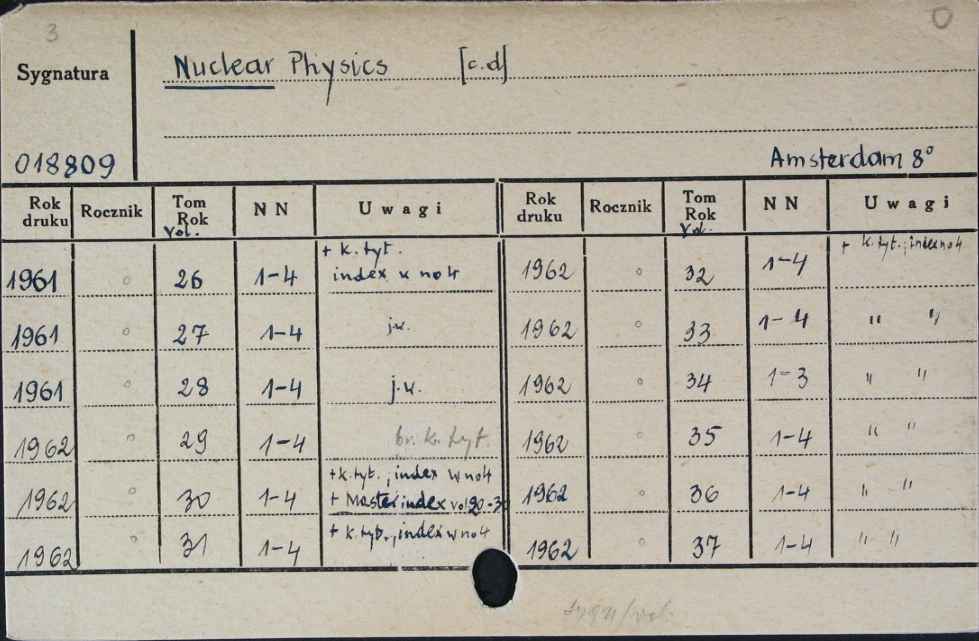 3
0
Sygnatura
Nuclear Physics [c.d]
018809
Amsterdam 8°
Rok druku Rocznik Tom Rok Vol. N N Uwagi Rok druku Rocznik Tom Rok Vol. N N Uwagi
1961 ° 26 1-4 + k. tyt. index w no 4 1962 ° 32 1-4 + k. tyt., index no 4
1961 ° 27 1-4 j.w. 1962 ° 33 1-4 " "
1961 ° 28 1-4 j.w. 1962 ° 34 1-3 " "
1962 ° 29 1-4 br. k. tyt. 1962 ° 35 1-4 " "
1962 ° 30 1-4 + k. tyt., index w no 4 + Master index vol 20-30 1962 ° 36 1-4 " "
1962 ° 31 1-4 + k. tyt., index w no 4 1962 ° 37 1-4 " "